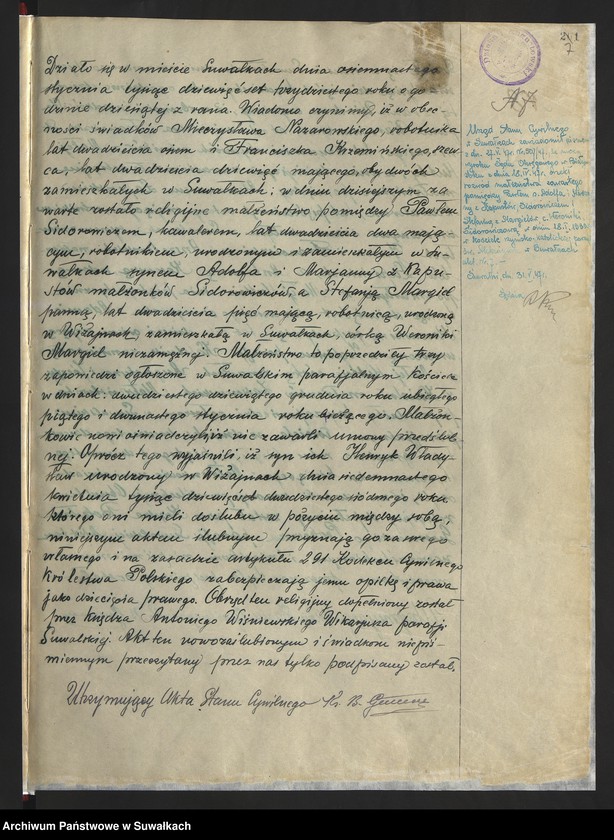 201
7
Działo się w mieście Suwałkach dnia osiemnastego
stycznia tysiąc dziewięćset trzydziestego roku o go-
dzinie dziesiątej z rana. Wiadomo czynimy, iż w obec-
ności świadków Mieczysława Nazarowskiego, robotnika
lat dwadzieścia osiem i Franciszka Krzemińskiego, szew
ca, lat dwadzieścia dziewięć mającego, obydwóch
zamieszkałych w Suwałkach; w dniu dzisiejszym za
warte zostało religijne małżeństwo pomiędzy Pawłem
Sidorowiczem, kawalerem, lat dwadzieścia dwa mają-
cym, robotnikiem, urodzonym i zamieszkałym w Su-
wałkach synem Adolfa i Marjanny z Kapu-
stów małżonków Sidorowiczów, a Stefanją Margiel
panną, lat dwadzieścia pięć mającą, robotnicą, urodzoną
w Wiżajnach zamieszkałą w Suwałkach, córką Weroniki
Margiel niezamężnej. Małżeństwo to poprzedziły trzy
zapowiedzi ogłoszone w Suwalskim parafjalnym Kościele
w dniach: dwudziestego dziewiątego grudnia roku ubiegłego
piątego i dwunastego stycznia roku bieżącego. Małżon-
kowie nowi oświadczyli, iż nie zawarli umowy przedślub-
nej. Oprócz tego wyjaśnili, iż syn ich Henryk Włady-
sław urodzony w Wiżajnach dnia siedemnastego
kwietnia tysiąc dziewięćset dwudziestego siódmego roku
którego oni mieli do ślubu w pożyciu między sobą,
niniejszym aktem ślubnym przyznają go za swego
własnego i na zasadzie artykułu 291 Kodeksu Cywilnego
Królestwa Polskiego zabezpieczają jemu opiekę i prawa
jako dziecięcia prawego. Obrzęd ten religijny dopełniony został
przez Księdza Antoniego Wiśniewskiego Wikarjusza parafji
Suwalskiej. Akt ten nowozaślubionym i świadkom niepiś-
miennym przeczytany przez nas tylko podpisany został.
Utrzymujący Akta Stanu Cywilnego Ks. B.
Urząd Stanu Cywilnego
w Suwałkach
rozwód małżeństwa zawartego
pomiędzy Pawłem s. Adolfa i
Sidorowiczem i
Stefanią z Margielów c. Weroniki
Sidorowiczową w dniu 18.I.1930
w Kościele rzymsko-katolickim
w Suwałkach
Suwałki, dn. 31.V.
Archiwum Państwowe w Suwałkach